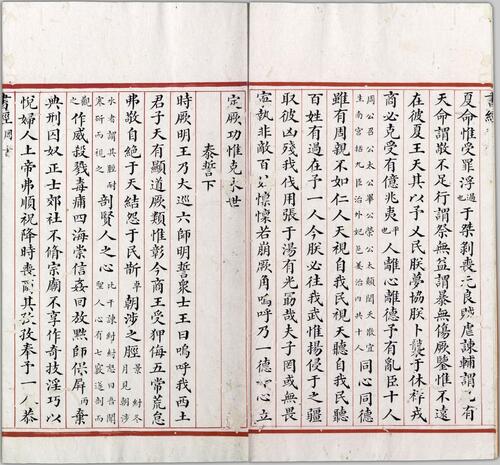 書經
夏命惟受罪浮過也于桀剝喪元良賊虐諫輔謂己有
天命謂敬不足行謂祭無益謂暴無傷厥鑒惟不遠
在彼夏王天其以予乂民朕夢協朕卜襲于休祥戎
商必克受有億兆夷平也人離心離德予有亂臣十人
周公召公太公畢公榮公太顛閎夭散宜生南宮括九臣治外邑姜治內共十人同心同德
雖有周親不如仁人天視自我民視天聽自我民聽
百姓有過在予一人今朕必往我武惟揚侵于之疆
取彼凶殘我伐用張于湯有光勗哉夫子罔或無畏
寧執非敵百姓懍懍若崩厥角嗚呼乃一德一心立
定厥功惟克永世
泰誓下
時厥明王乃大巡六師明誓衆士王曰嗚呼我西土
君子天有顯道厥類惟彰今商王受狎侮五常荒怠
弗敬自絕于天結怨于民斮朝涉之脛紂冬月見朝涉
水者謂其脛耐寒斫而視之剖賢人之心比干諫紂紂怒曰吾聞聖人心有七竅遂剖而
觀之作威殺戮毒痡四海崇信姦回放黜師保屏丙棄
典刑囚奴正士郊社不修宗廟不享作奇技淫巧以
悅婦人上帝弗順祝降時喪爾其孜孜奉予一人恭
書經周書